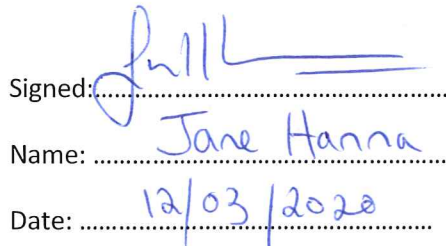 Signed:
Name: Jane Hanna
Date: 12/03/2020